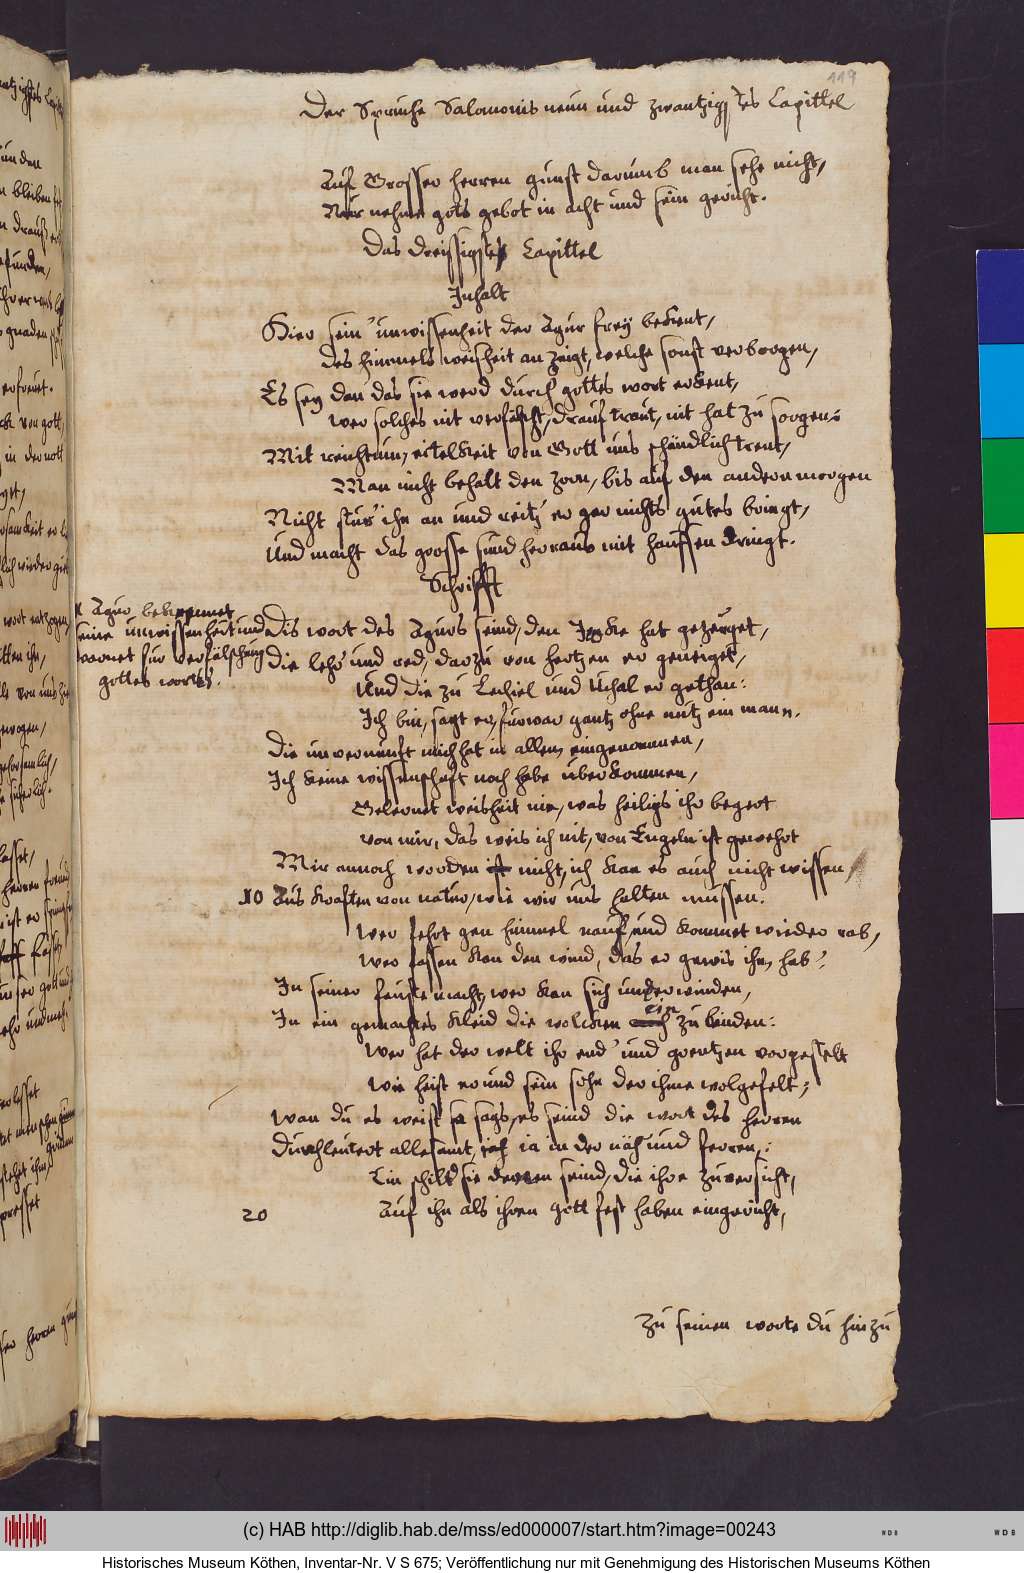 119
Der Spruche Salomonis neun und zwantzigstes Capittel
Auf Grosser herren gunst darumb man sehe nicht,
Nur nehme gots gebot in acht und sein gericht.
Das dreissigste Capittel
Inhalt
Hier sein' unwissenheit der Agur frey bekent,
des himmels weisheit an zeigt, welche sonst verborgen,
Es sey dan das sie werd durch gottes wort erkent,
wer solches nit verfälscht, drauf traut, nit hat zu sorgen:
Mit reichtum, eitelkeit von Gott uns schändlich trent,
Man nicht behalt den zorn, bis auf den andern morgen
Nicht ihn an und reitz' er gar nichts gutes bringt,
Und macht das grosse sund heraus mit hauffen dringt.
Schrifft
Agur bekennet
seine unwissenheit und
warnet fur verfälschung
gottes wortes.
Dis wort des Agurs seind, den Jake hat gezeuget,
die lehr' und red, darzu von hertzen er geneiget,
Und die zu Lechiel und Uchal er gethan:
Ich bin, sagt er, furwar gantz ohne nutz ein man,
die unvernunft mich hat in allem eingenommen,
Ich keine wissenschaft noch habe uberkommen,
Gelernet weisheit nie, was heiligs ihr begert
von mir, das weis ich nit, von Engeln ist gewehrt
Mir annoch worden nicht, ich kan es auch nicht wissen,
10 Aus kraften von natur, wie wir uns halten mussen.
Wer fehrt gen himmel nauf, und kommet wieder rab,
wer fassen kan den wind, das er gewis ihn hab?
In seiner feuste macht, wer kan sich underwinden,
In ein gemachtes kleid die wolcken ein zu binden:
Wer hat der welt ihr end' und grentzen vorgestelt
wie heist er und sein sohn der ihme wolgefelt;
wan du es weist so sags, es seind die wort des herren
Durchleutert allesamt, ja in der näh' und ferren,:
Ein schild sie denen seind, die ihre zuversicht,
20 Auf ihn als ihren gott fest haben eingericht,
Zu seinen worte du hinzu
(c) HAB http://diglib.hab.de/mss/ed000007/start.htm?image=00243
WDB
WDB
Historisches Museum Köthen, Inventar-Nr. V S 675; Veröffentlichung nur mit Genehmigung des Historischen Museums Köthen